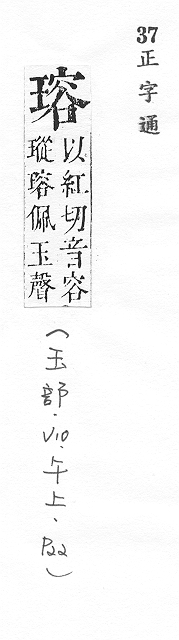 37 正字通
瑢 以紅切音容
瑽瑢佩玉聲
(玉部．V10．午上．P22)